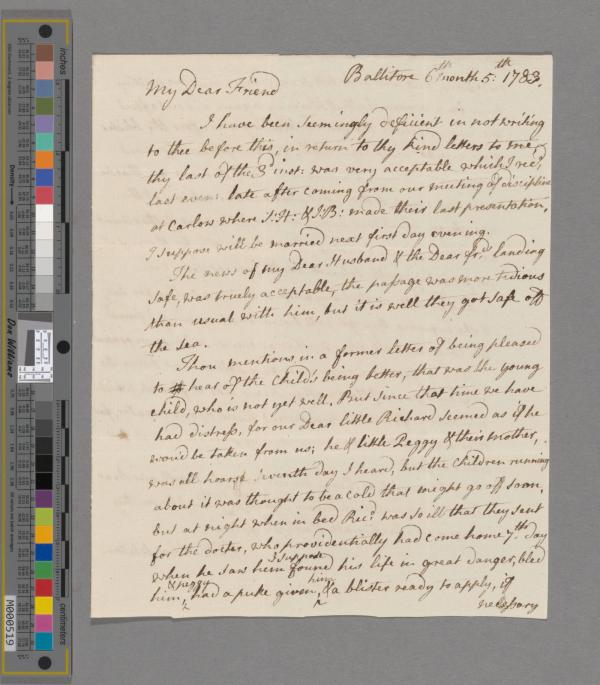 Ballitore 6th month 5:th 1783.
My Dear Friend
I have been seemingly deficient in not writing
to thee before this, in return to thy kind letters to me,
thy last of the 3d inst: was very acceptable which I recd
last even: late after coming from our meeting of discipline
at Carlow where J:H: & J:B: made their last presentation,
I suppose will be married next first day evening.
The news of my Dear Husband & the Dear frds landing
safe, was truely acceptable, the passage was more tidious
than usual with him, but it is well they got safe off
the sea.
Thou mentions in a former letter of being pleased
to hear of the child's being better, that was the young
child, who is not yet well. But since that time we have
had distress, for our Dear little Richard seemed as if he
would be taken from us; he & little Peggy & their mother,
was all hoarse seventh day I heard, but the children running
about it was thought to be a cold that might go off soon,
but at night when in bed Ricd was so ill that they sent
for the doctor, who providentially had come home 7th day
when he saw him I suppose found his life in great danger, bled
him, & peggy had a puke given, him & a blister ready to apply, if
necessary
inches
centimeters
Don Williams
M000519